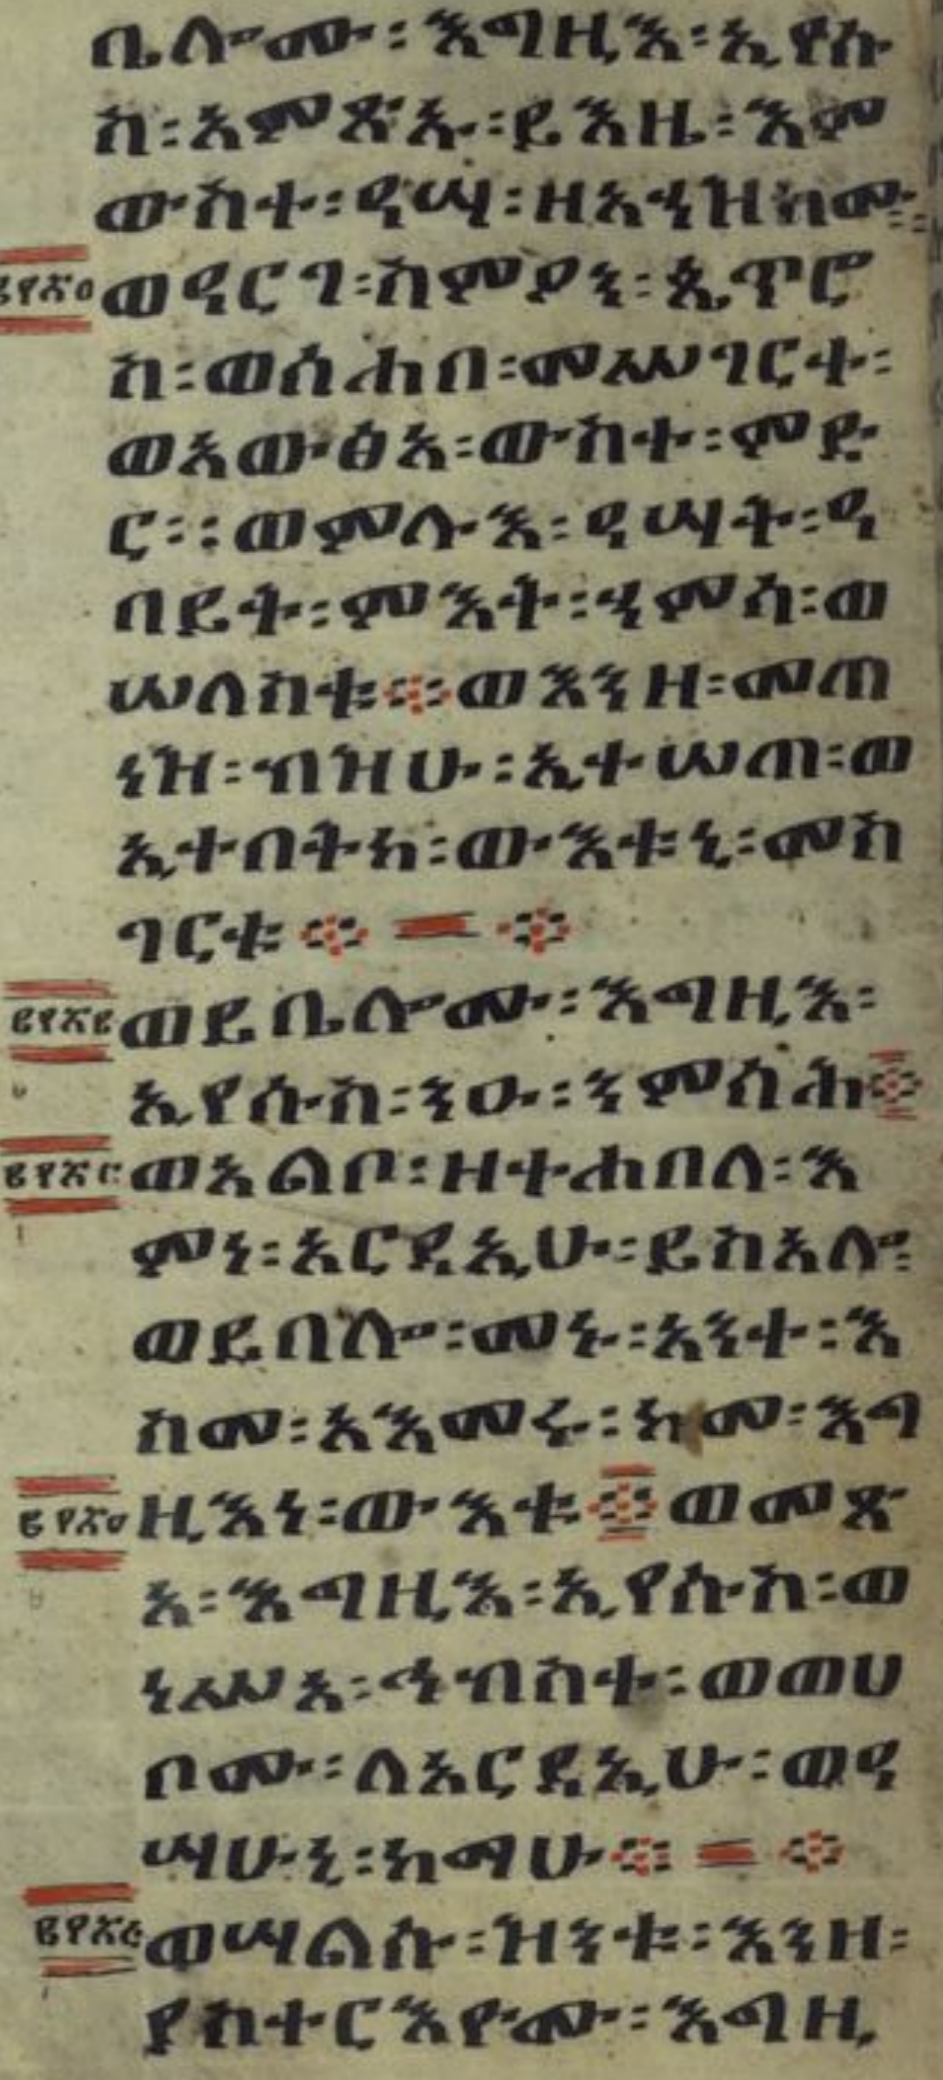 ቤሎሙ፡እግዚእ፡ኢየሱ
ስ፡አምጽኡ፡ይእዜ፡እም
ውስተ፡ዓሣ፡ዘአኀዝክሙ፡፡
ወዓርገ፡ስምዖን፡ጴጥሮ
ስ፡ወሰሐበ፡መሥገርተ፡
ወአውፅአ፡ውስተ፡ምድ
ር፡፡ወምሉእ፡ዓሣት፡ዓ
በይት፡ምእት፡ኃምሳ፡ወ
ሠለስቱ፡፡ወእንዘ፡መጠ
ነዝ፡ብዝሁ፡ኢተሠጠ፡ወ
ኢተበትከ፡ውእቱኒ፡መስ
ገርቱ፡፡
ወይቤሎሙ፡እግዚእ፡
ኢየሱስ፡ንዑ፡ንምሳሕ፡፡
ወአልቦ፡ዘተሐበለ፡እ
ምነ፡አርዳኢሁ፡ይስአሎ፡
ወይበሎ፡መኑ፡አንተ፡እ
ስመ፡አእመሩ፡ከመ፡እግ
ዚእነ፡ውእቱ፡፡ወመጽ
አ፡እግዚእ፡ኢየሱስ፡ወ
ነሥአ፡ኅብስተ፡ወወሀ
ቦሙ፡ለአርዳኢሁ፡ወዓ
ሣሁኒ፡ከማሁ፡፡
ወሣልሱ፡ዝንቱ፡እንዘ፡
ያስተርእዮሙ፡እግዚ